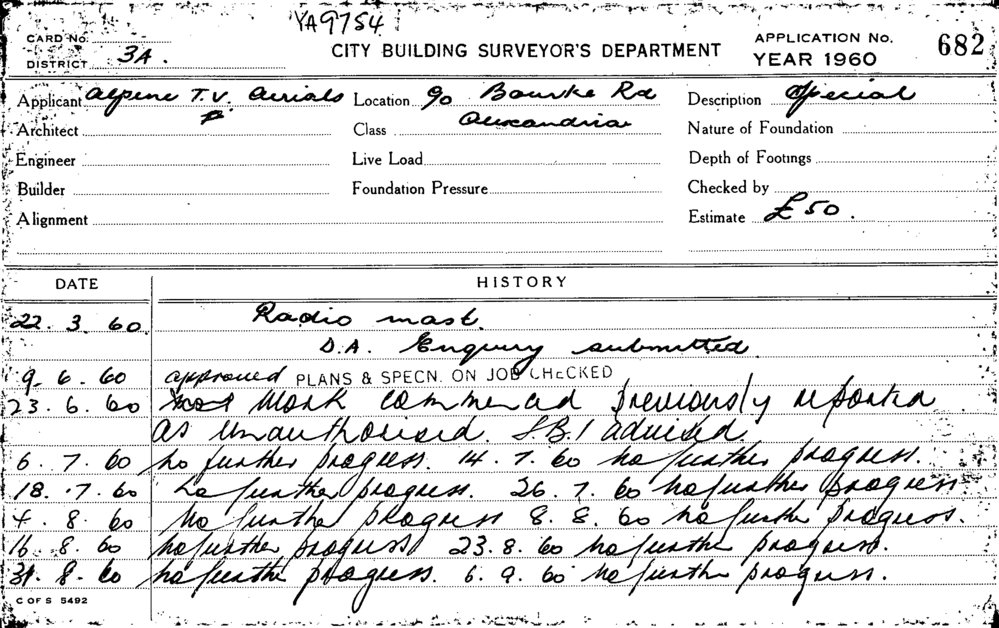 YA9754
CARD No.
DISTRICT 3A.
CITY BUILDING SURVEYOR'S DEPARTMENT
APPLICATION No. 682
YEAR 1960
Applicant Alpine T.V. Aerials Location 90 Bourke Rd Description Special
Architect Class Alexandria Nature of Foundation
Engineer Live Load Depth of Footings
Builder Foundation Pressure Checked by
Alignment Estimate £50.
DATE HISTORY
22. 3. 60. Radio mast.
D.A. Enquiry submitted
9. 6. 60 approved PLANS & SPECN. ON JOB CHECKED
23. 6. 60 Work commenced previously reported
as unauthorised. S.B.1 advised
6. 7. 60 no further progress. 14. 7. 60 no further progress.
18. 7. 60 no further progress. 26. 7. 60 no further progress
4. 8. 60 no further progress 8. 8. 60 no further progress.
16. 8. 60 no further progress 23. 8. 60 no further progress.
31. 8. 60 no further progress. 6. 9. 60 no further progress.
C OF S 5492